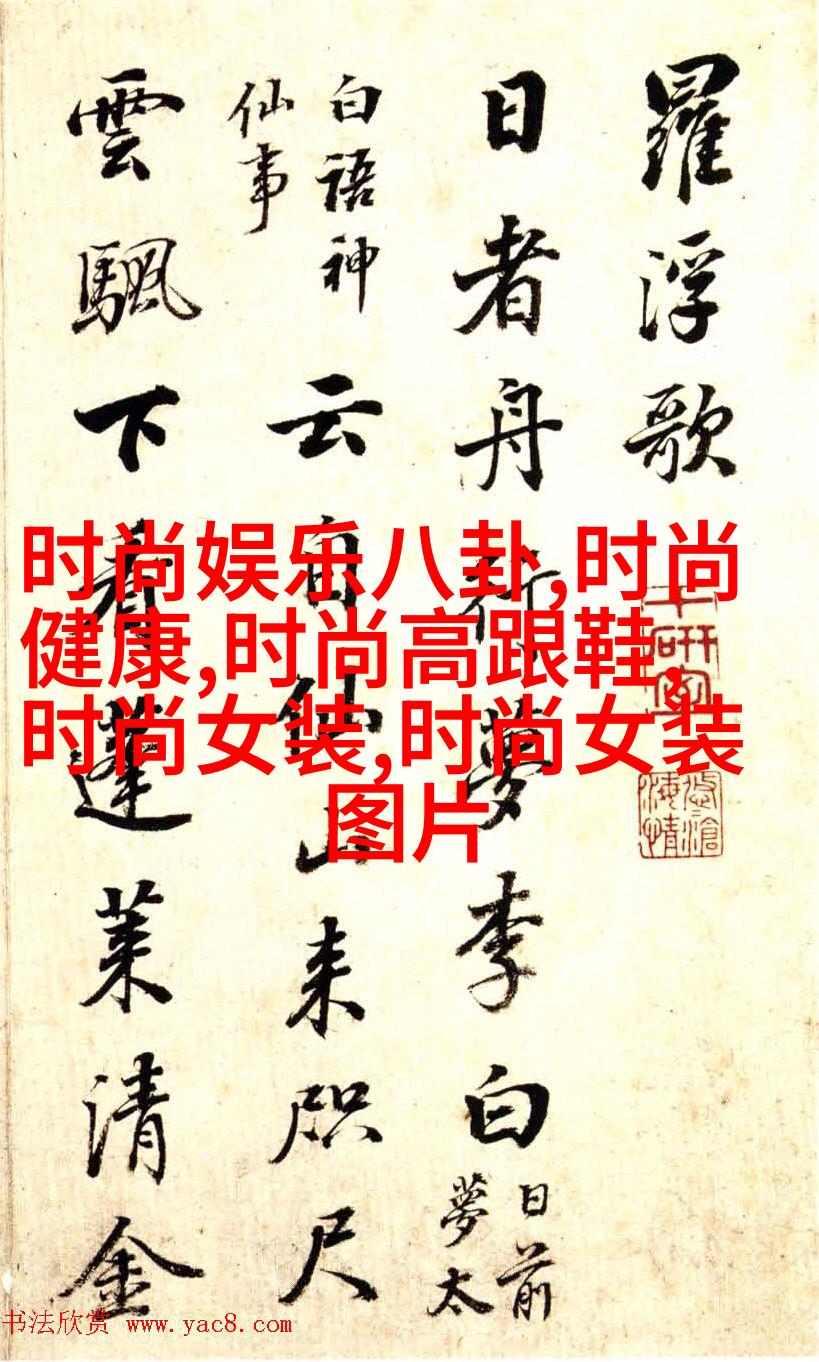 羅浮歌
日者舟行夢李白
日前
夢太
白語神
仙事
云自仙山来咫尺
雲颿下看蓬莱清金
时尚娱乐八卦,时尚
健康,时尚高跟鞋,
时尚女装,时尚女装
图片
书法欣赏 www.yac8.com